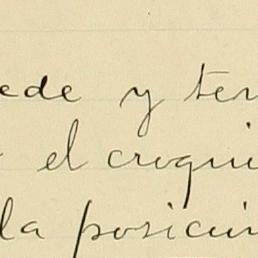 ede y ten
el croqui
la posición